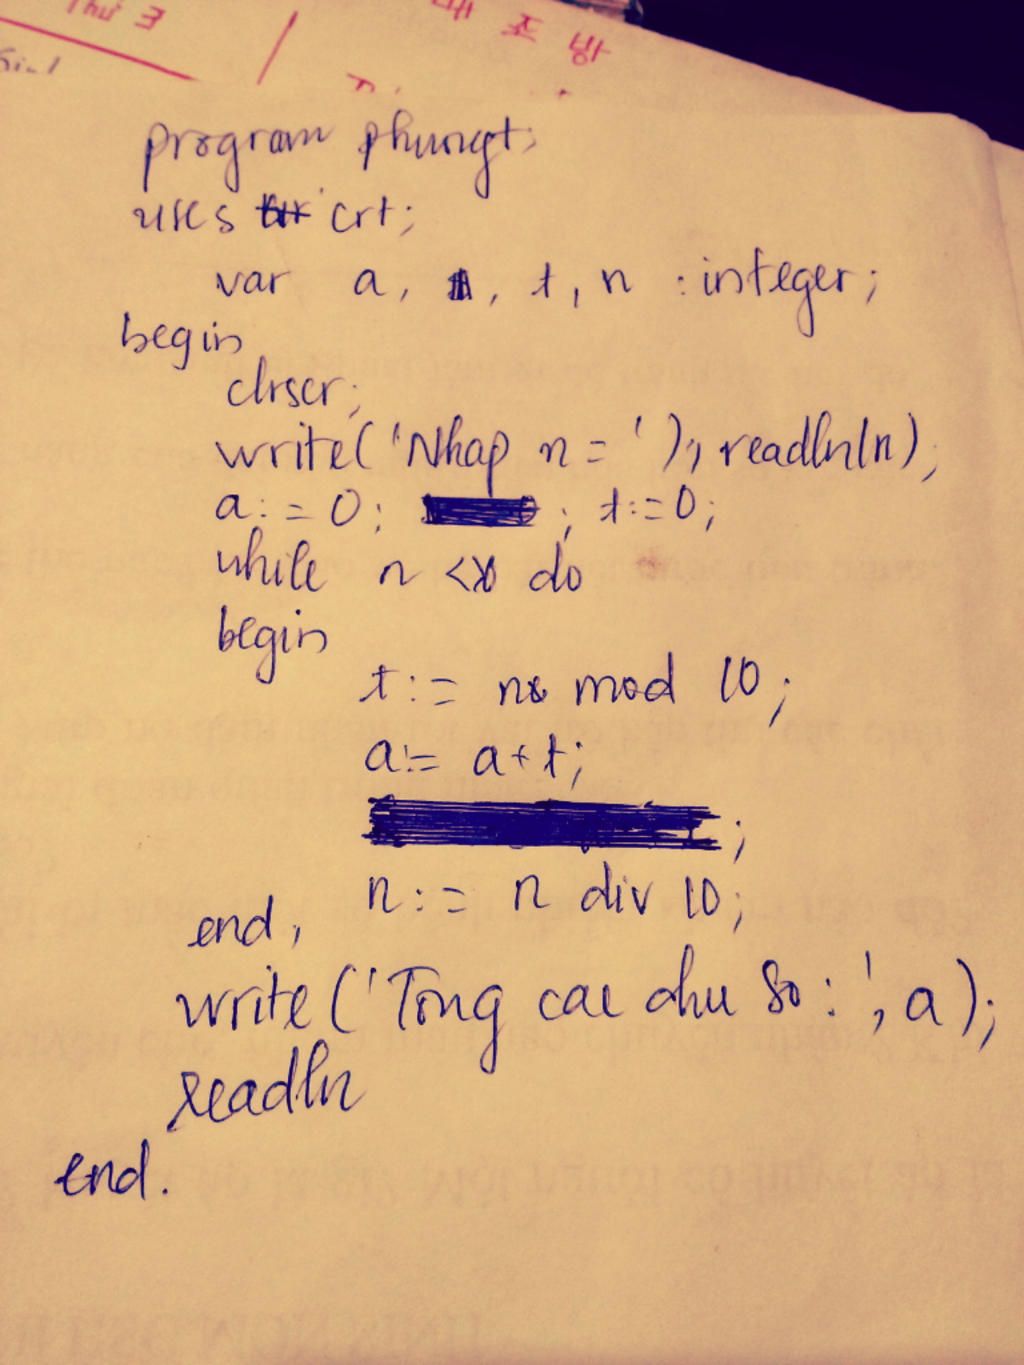 Thứ 3
대 조 방
program phungt;
uses crt;
var a, , t, n : integer;
begin
clrscr;
write('Nhap n = '); readln(n);
a := 0; ; t:=0;
while n <>0 do
begin
t := n mod 10;
a:= a+t;
;
n := n div 10;
end;
write('Tong cac chu so : ', a);
readln
end.